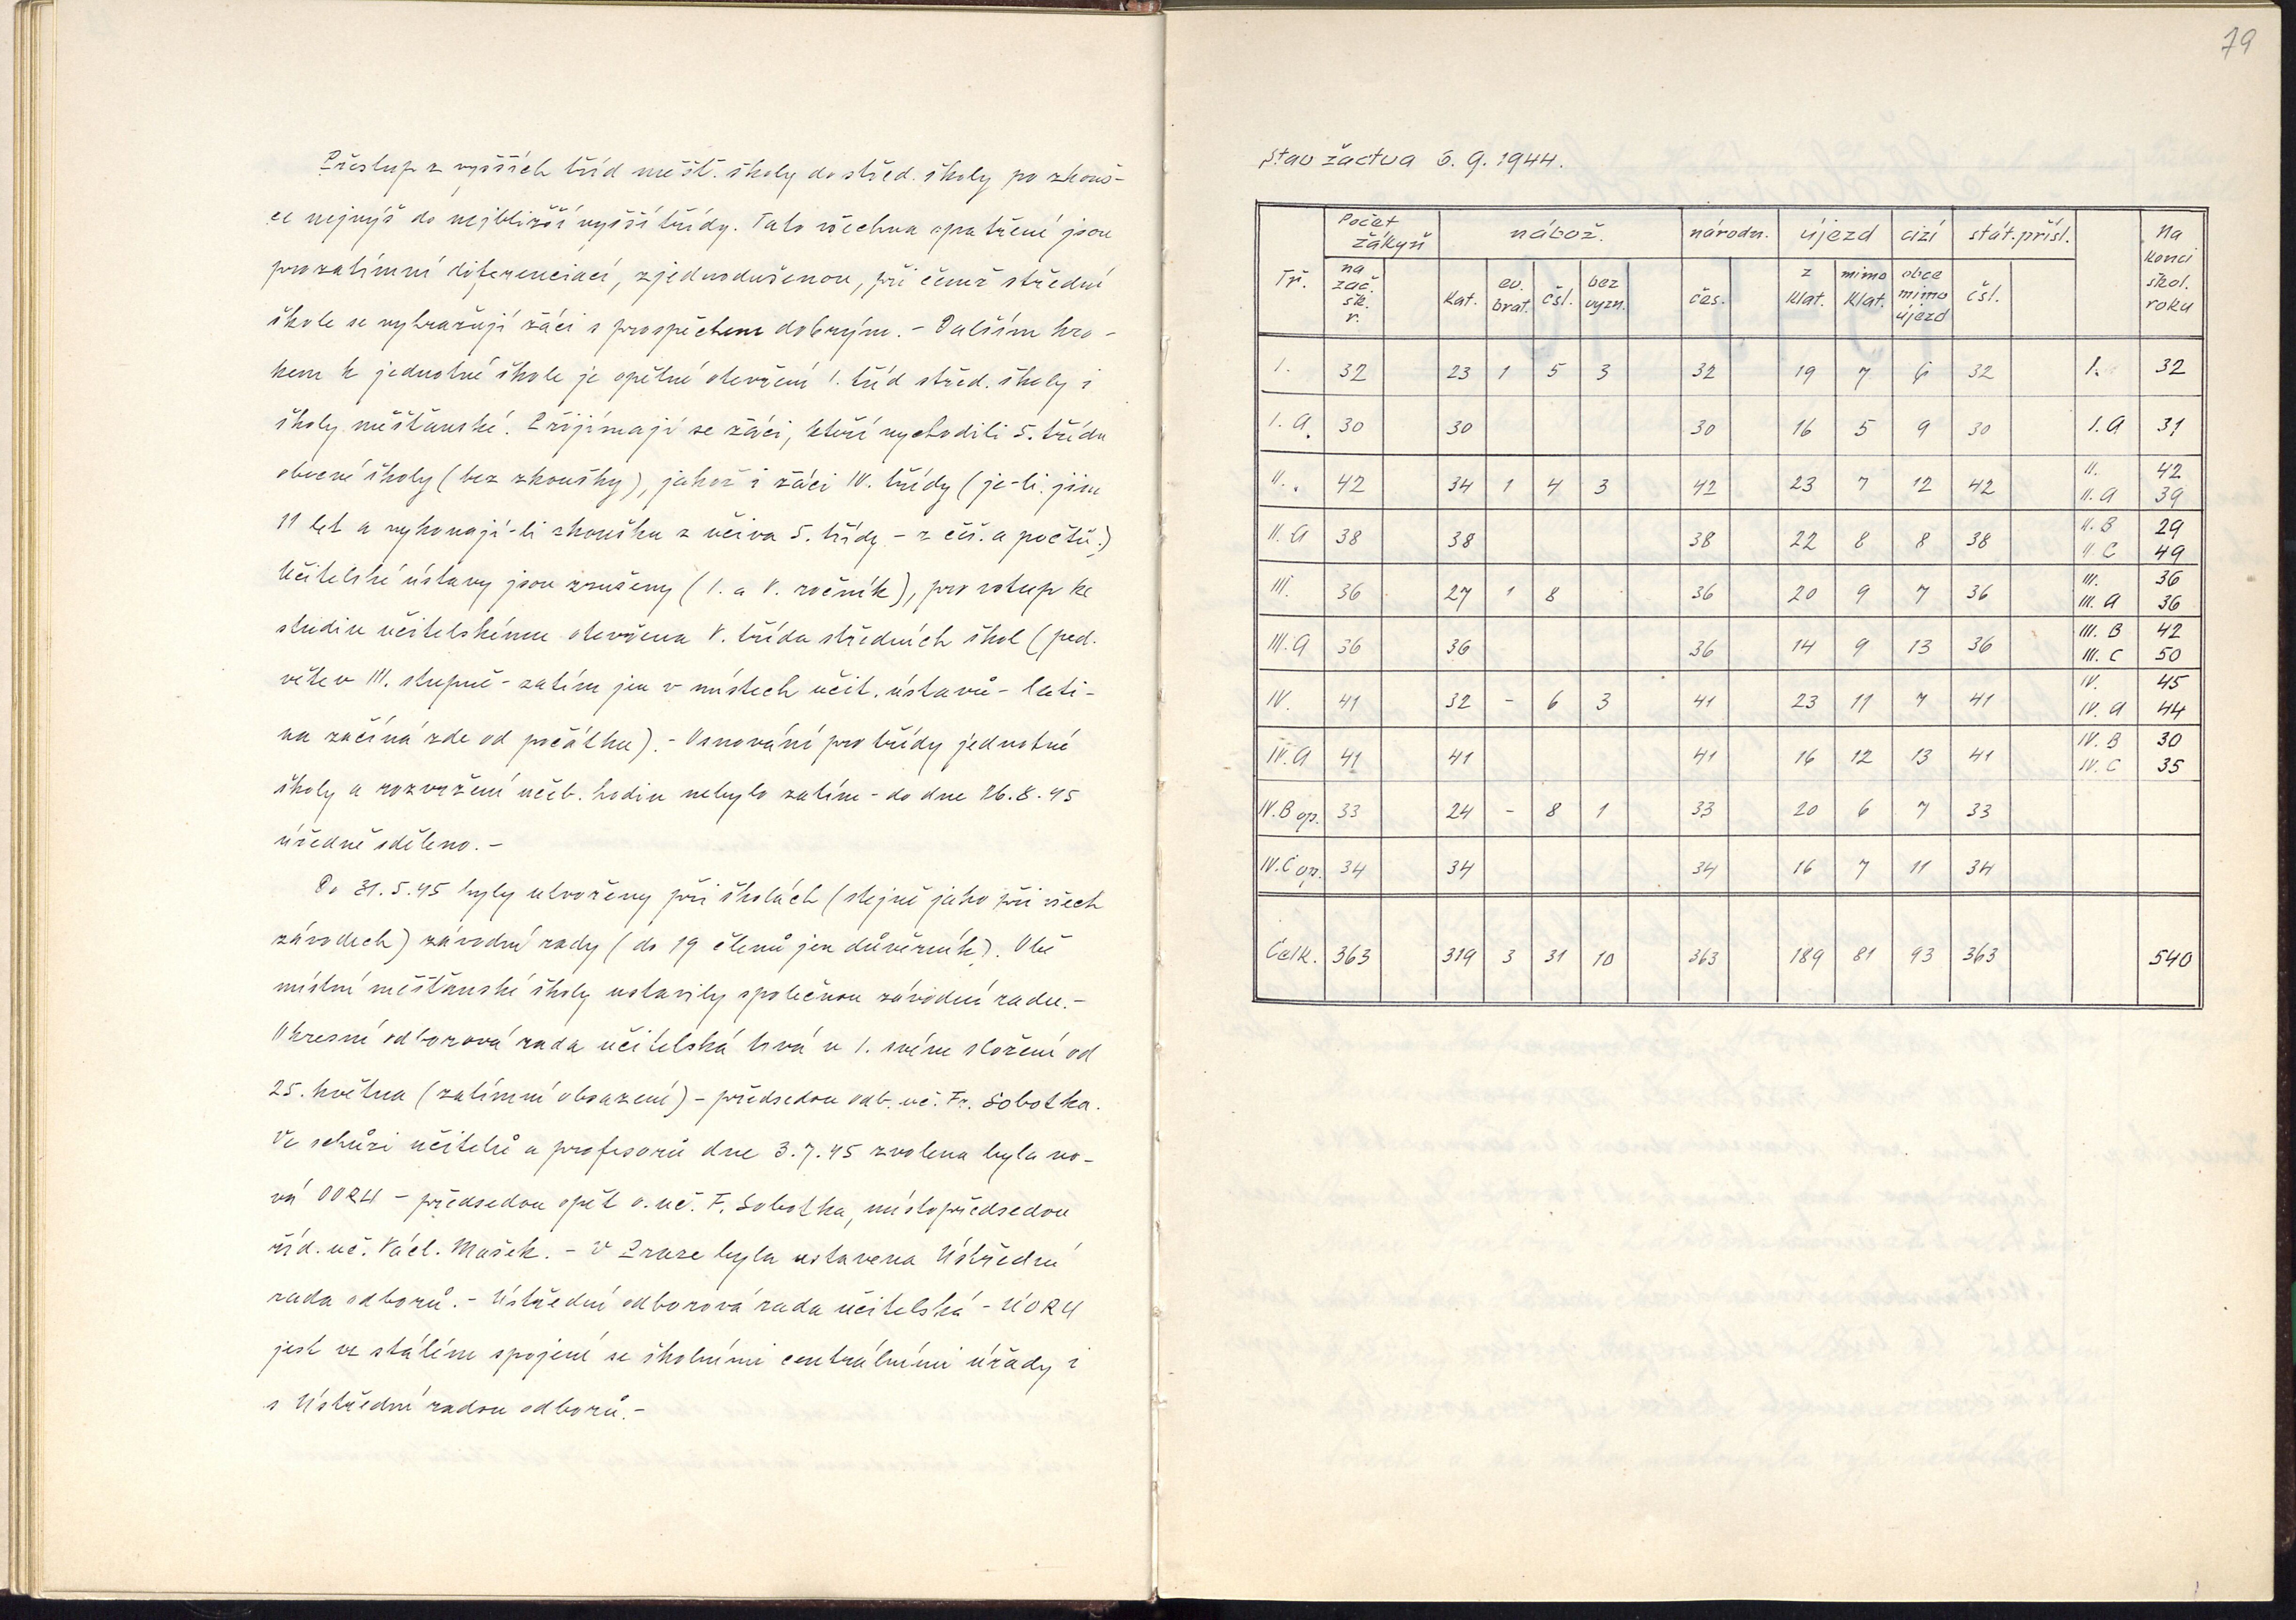 Přestup z vyšších tříd měšť. školy do střed. školy po zkouš-
ce nejvýš do nejbližší vyšší třídy. Tato všechna opatření jsou
prozatímní diferenciací, zjednodušenou, při čemž střední
škole se vyhrazují žáci s prospěchem dobrým. - Dalším kro-
kem k jednotné škole je opětné otevření 1. tříd střed. školy i
školy měšťanské. Přijímají se žáci, kteří vychodili 5. třídu
obecné školy (bez zkoušky), jakož i žáci IV. třídy (je-li jim
11 let a vykonají-li zkoušku z učiva 5. třídy - z češ. a počtů.)
Učitelské ústavy jsou zrušeny (I. a V. ročník), pro vstup ke
studiu učitelskému otevřena V. třída středních škol (ped.
větev III. stupně - zatím jen v místech učit. ústavů - lati-
na začíná zde od počátku). - Osnování pro třídy jednotné
školy a rozvržení učeb. hodin nebylo zatím - do dne 26.8.45
úředně sděleno. -
Do 31.5.45 byly utvořeny při školách (stejně jako při všech
závodech) závodní rady (do 19 členů jen důvěrník). Obě
místní měšťanské školy ustavily společnou závodní radu. -
Okresní odborová rada učitelská trvá v 1. svém složení od
25. května (zatímní obsazení) - předsedou odb. uč. Fr. Sobotka.
Ve schůzi učitelů a profesorů dne 3.7.45 zvolena byla no-
vá OORU - předsedou opět o. uč. F. Sobotka, místopředsedou
říd. uč. Václ. Mašek. - V Praze byla ustavena Ústřední
rada odborů. - Ústřední odborová rada učitelská - ÚORU
jest ve stálém spojení se školními centrálními úřady i
s Ústřední radou odborů. -
79
Stav žactva 6. 9. 1944.
Tř. Počet žákyň na zač. šk. r. nábož. kat. ev. brat. čsl. bez vyzn. národn. čes. újezd z Klat. mimo Klat. cizí obce mimo újezd stát. přísl. čsl. Na konci škol. roku
I. 32 23 1 5 3 32 19 7 6 32 I. 32
I. A 30 30 30 16 5 9 30 I. A 31
II. 42 34 1 4 3 42 23 7 12 42 II. 42
II. A 39
II. A 38 38 38 22 8 8 38 II. B 29
II C 49
III. 36 27 1 8 36 20 9 7 36 III. 36
III. A 36
III. A 36 36 36 14 9 13 36 III. B 42
III. C 50
IV. 41 32 - 6 3 41 23 11 7 41 IV. 45
IV. A 44
IV. A 41 41 41 16 12 13 41 IV. B 30
IV. C 35
IV. B op. 33 24 - 8 1 33 20 6 7 33
IV. C op. 34 34 34 16 7 11 34
Celk. 363 319 3 31 10 363 189 81 93 363 540